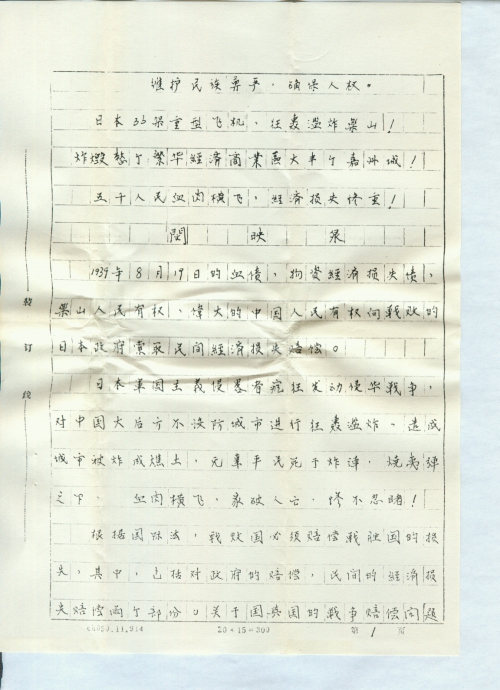 维护民族尊严，确保人权。
日本33架重型飞机，狂轰滥炸乐山！
炸毁整个繁华経済商業区大半个嘉州城！
五千人民血肉横飞，経済损失惨重！
閆 映
1939年8月19日的血债，物资経済损失债，
楽山人民有权、偉大的中国人民有权向戦败的
日本政府索取民间経済损失赔偿。
日本軍国主義侵畧者疯狂发动侵华戦争，
对中国大后方不设防城市进行狂轰滥炸。造成
城市被炸成焦土，无辜平民死于炸弹，烧夷弹
之下，血肉横飞，家破人亡，惨不忍睹！
根据国际法，戦败国必须赔偿戦胜国的损
失，其中，包括对政府的赔偿，民间的経済损
失赔偿两个部份。关于国与国的戦争赔偿问题
装
订
线
20×15=300
第1页